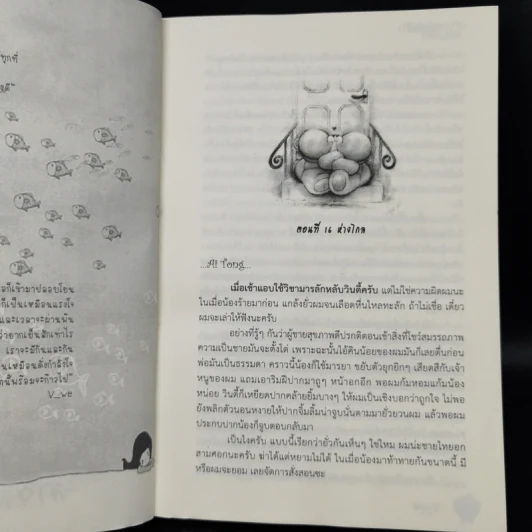 ทุกที่
ลก็เข้ามาปลอบโยน
ก็เป็นเหมือนแรงใจ
และเวลาจะผ่านพ้น
ว่ายากเย็นสักเท่าไร
เราจะมีกันและกัน
V_we
ตอนที่ 16 ห่างไกล
...Ai Tong...
เมื่อเช้าแอบใช้วิชามารลักหลับวินดี้ครับ แต่ไม่ใช่ความผิดผมนะ
ในเมื่อน้องร้ายมาก่อน แกล้งยั่วผมจนเลือดหื่นไหลทะลัก ถ้าไม่เชื่อ เดี๋ยว
ผมจะเล่าให้ฟังนะครับ
อย่างที่รู้ๆ กันว่าผู้ชายสุขภาพดีปรกติตอนเช้าสิ่งที่โชว์สมรรถภาพ
ความเป็นชายมันจะตั้งโด่ เพราะฉะนั้นไอ้คิดน้อยของผมมันก็เลยตื่นก่อน
พ่อมันเป็นธรรมดา คราวนี้น้องก็ใช้มารยา ขยับตัวยุกยิกๆ เสียดสีกับเจ้า
หนูของผม แถมเอาริมฝีปากมาถูๆ หน้าอกอีก พอผมก้มหอมแก้มน้อง
หน่อย วินดี้ก็เหยียดปากคล้ายยิ้มบางๆ ให้ผมเป็นเชิงบอกว่าถูกใจ ไม่พอ
ยังพลิกตัวนอนหงายให้ปากจิ้มลิ้มน่าจูบนั่นตามมายั่วยวนผม แล้วพอผม
ประกบปากน้องก็จูบตอบกลับมา
เป็นไงครับ แบบนี้เรียกว่ายั่วกันเห็นๆ ใช่ไหม ผมน่ะชายไทยอก
สามศอกนะครับ ฆ่าได้แต่หยามไม่ได้ ในเมื่อน้องมาท้าทายกันขนาดนี้ มี
หรือผมจะยอม เลยจัดการสั่งสอนซะ